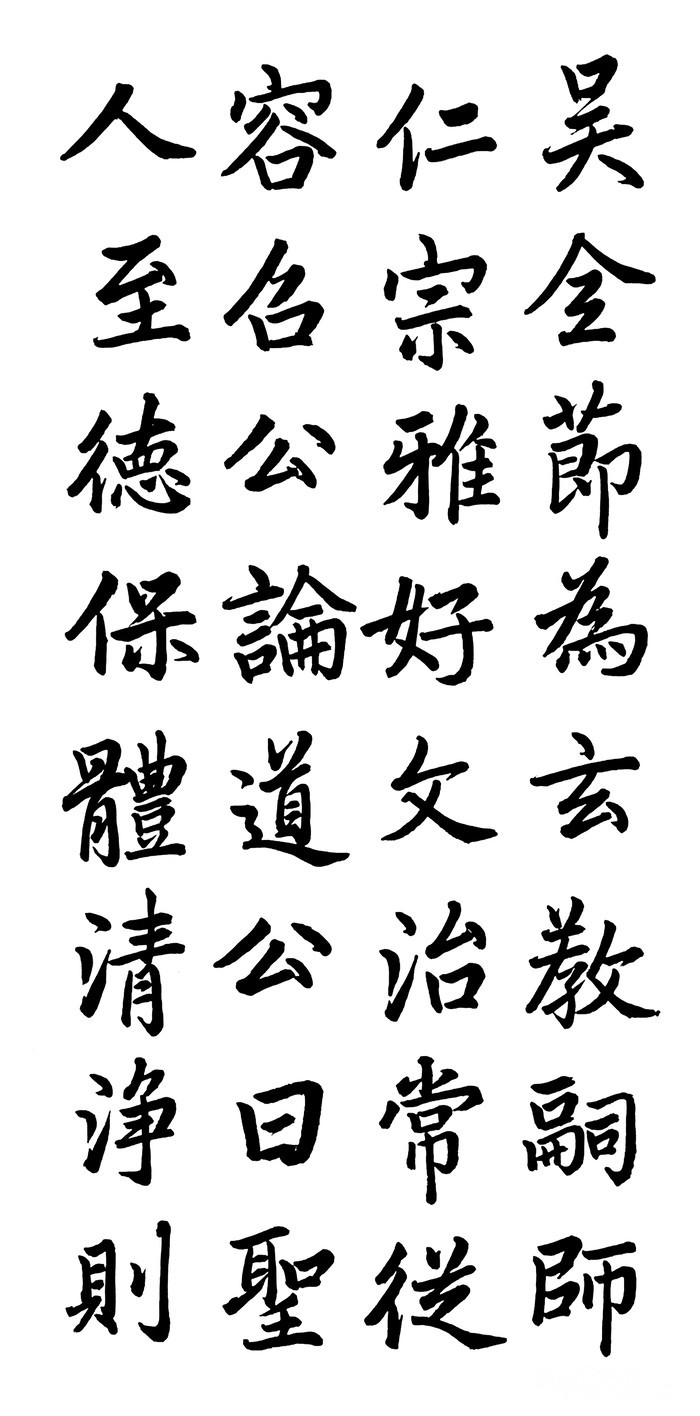 吴全節為玄教嗣師
仁宗雅好文治常從
容召公論道公曰聖
人至德保體清淨則